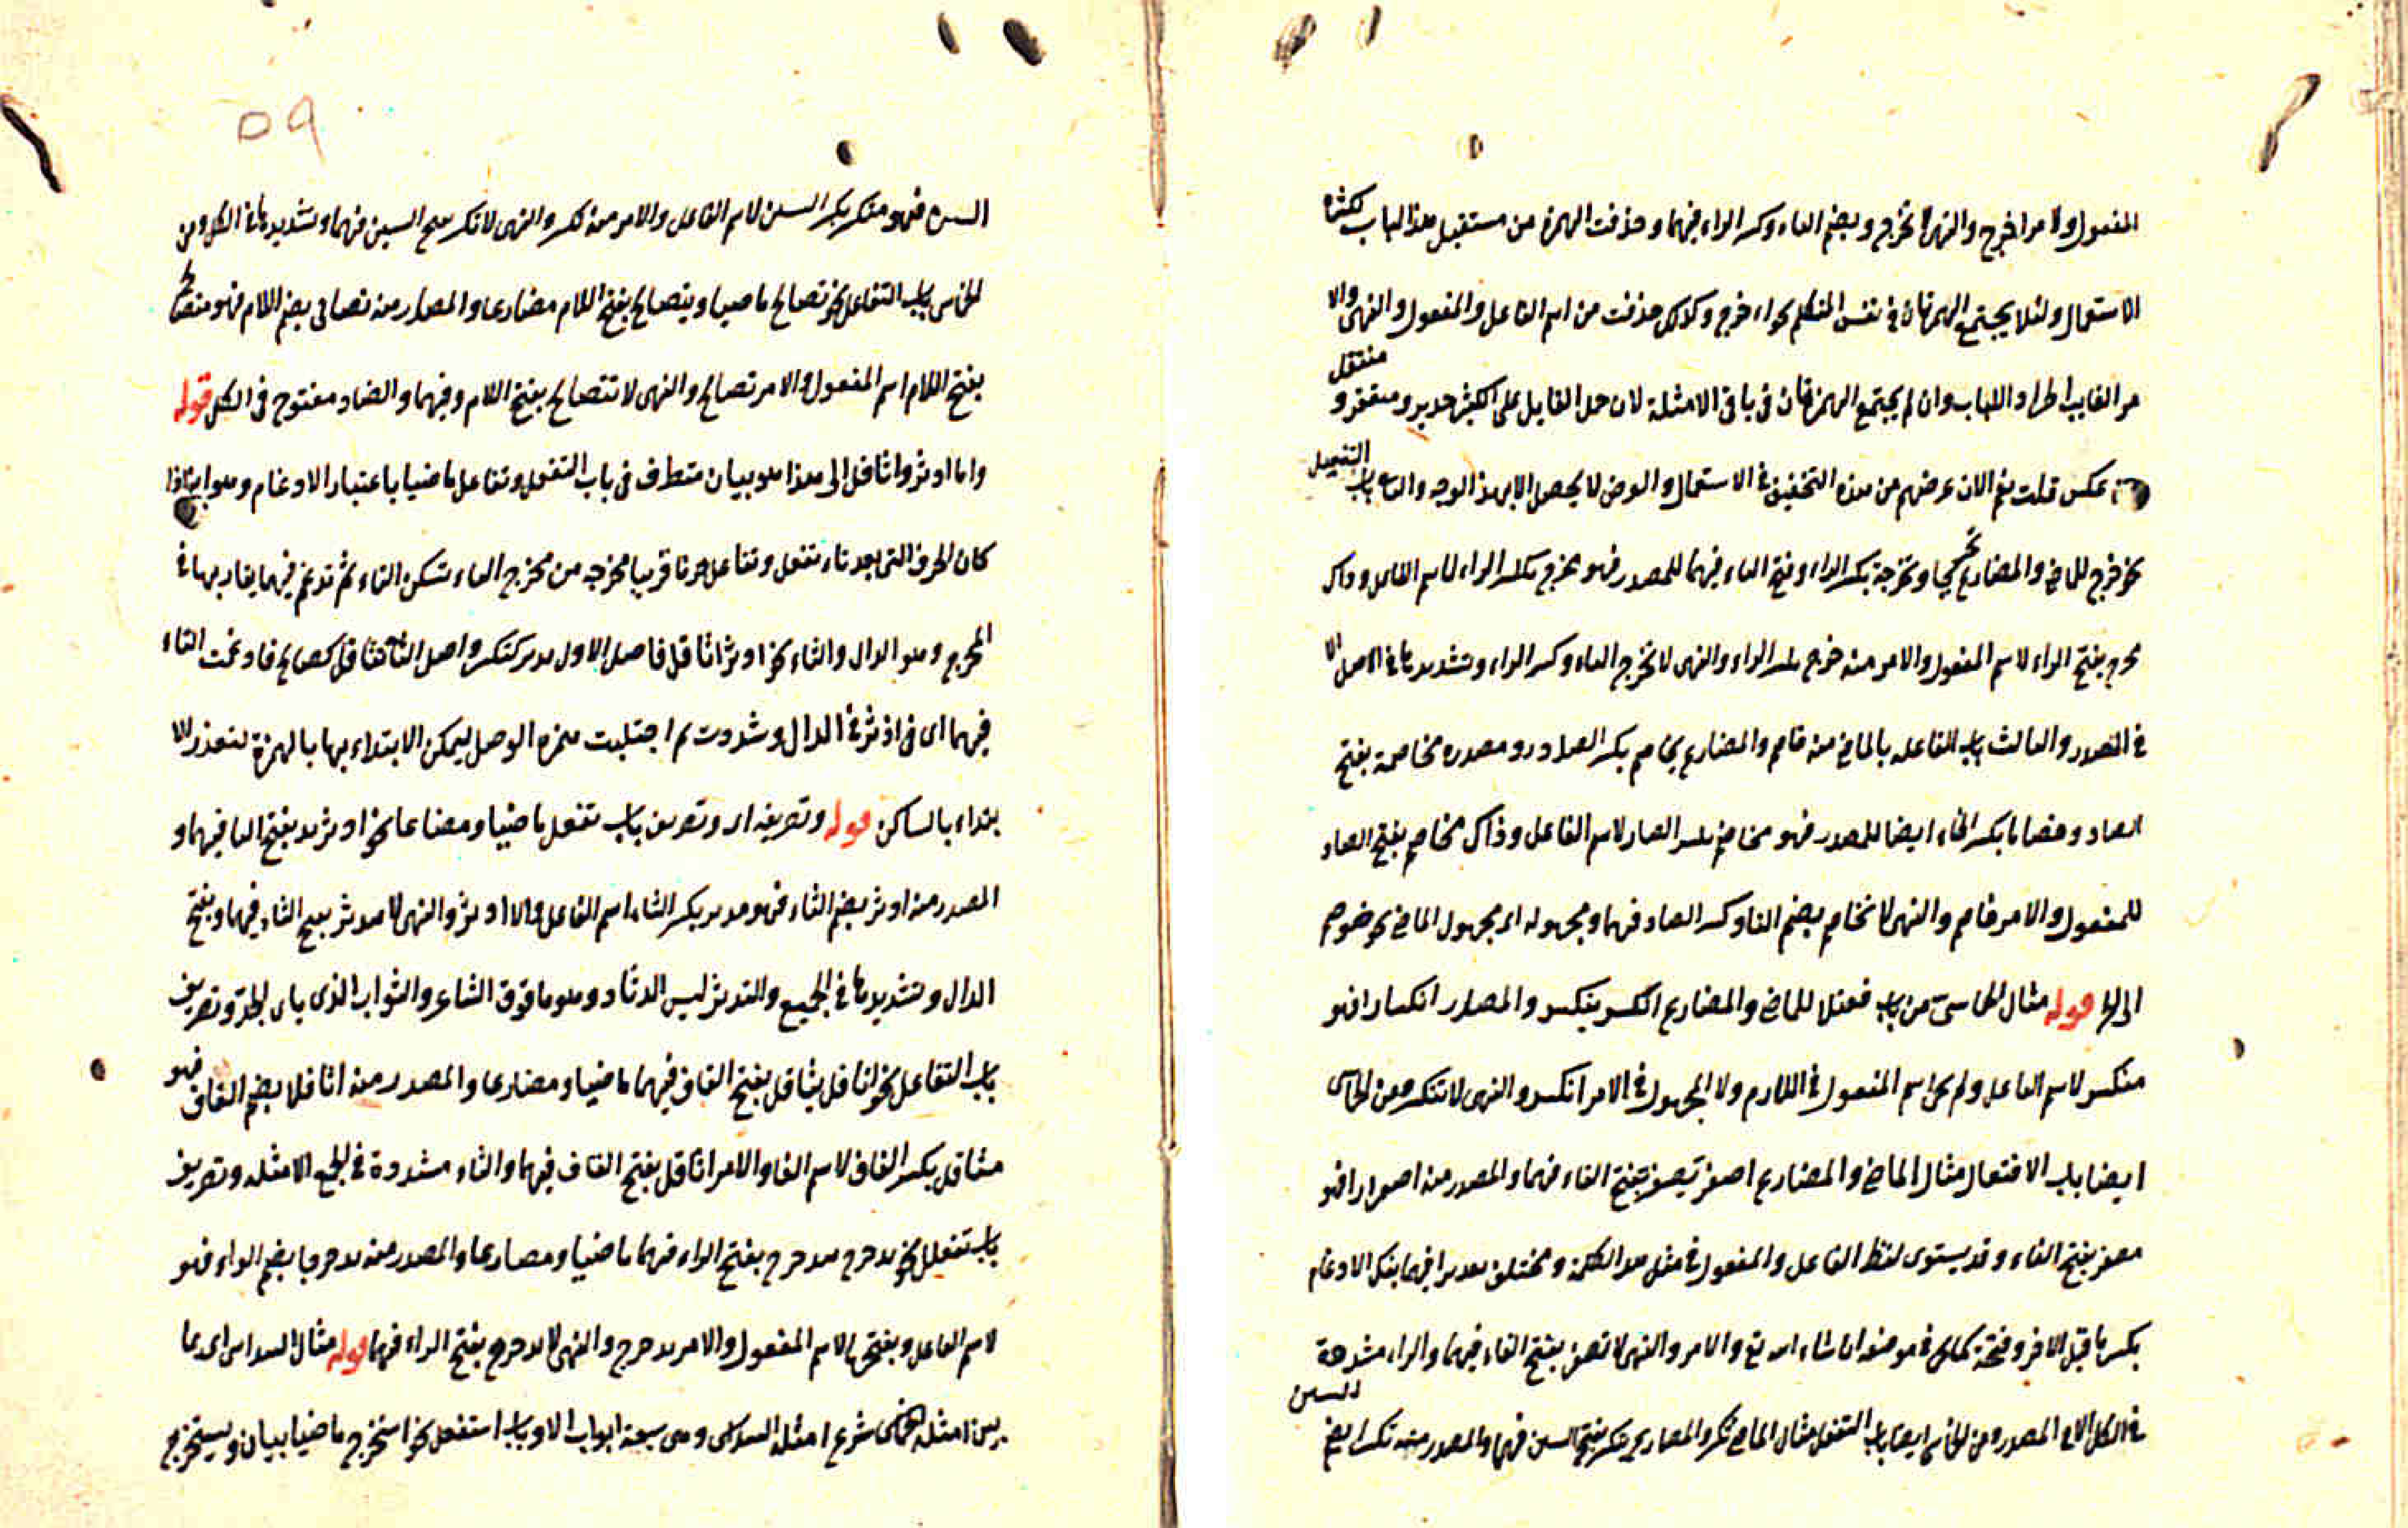 المفعول والامر اخرج والنهى لا تخرج وبضم التاء وكسر الراء فيهما وحذفت الهمزة من مستقبل هذا الباب لكثرة
الاستعمال ولئلا يجتمع الهمزتان فى نفس المتكلم نحو اءخرج وكذلك حذفت من اسم الفاعل والمفعول والنهى والا
مر الغايب اطرادا للباب وان لم يجتمع الهمزتان فى باقى الامثلة لان حمل القليل على الكثير جدير
عكس قلت نعم الان غرضهم من هذه التخفيف فى الاستعمال والغرض لا يحصل الا بهذا الوجه والثانى باب التفعيل
نحو خرج للماضى والمضارع وتخرجة بكسر الراء وفتح التاء فيهما للمصدر فهو مخرج بكسر الراء لاسم الفاعل وذاك
مخرج بفتح الراء لاسم المفعول والامر منه خرج بكسر الراء والنهى لا تخرج التاء وكسر الراء وتشديدها فى الاصل الا
فى المصدر والثالث باب المفاعلة بالماضى منه خاصم والمضارع يخاصم بكسر الصاد ومصدره مخاصمة بفتح
الصاد وخصاما بكسر الخاء ايضا للمصدر فهو مخاصم بكسر الصاد لاسم الفاعل وذاك مخاصم بفتح الصاد
للمفعول والامر خاصم والنهى لا تخاصم بضم التا وكسر الصاد فيهما ومجهوله اى مجهول الماضى نحو خوصم
قوله مثال الخماسى من باب للماضى والمضارع انكسر ينكسر والمصدر انكسارا فهو
منكسر لاسم الفاعل ولم يجئ اسم المفعول فى اللازم ولا المجهول فى الامر انكسر والنهى لا تنكسر ومن الخماسى
ايضا باب الافتعال مثال الماضى والمضارع اصفر يصفر بفتح الفاء فيهما والمصدر منه اصفرارا فهو
مصفر بفتح الفاء وقد يستوى لفظ الفاعل والمفعول فى مثل هذا الكلمة ومختلف تقديرا فيهما بفك الادغام
بكسر ما قبل الاخر وفتحه كما فى موضعه ان شاء الله تع والامر والنهى لا تصفر بفتح الفاء فيهما والراء مشددة
فى الكل الا فى المصدر ومن الخماسى ايضا باب التفعل مثال الماضى تكسر والمضارع يتكسر بفتح السين فيهما والمصدر منه تكسرا بضم السين
السين فهو متكسر بكسر السين لاسم الفاعل والامر منه تكسر والنهى لا تتكسر بفتح السين فيهما وتشديدها فى الكل ومن
الخماسى باب التفاعل نحو تصالح ماضيا ويتصالح بفتح اللام مضارعا والمصدر منه تصالحا بضم اللام فهو متصالح
بفتح اللام اسم المفعول والامر تصالح والنهى لا تتصالح بفتح اللام وفيهما والصاد مفتوح فى الكل قوله
واما ادثر واثاقل الى هذا هو بيان متطرف فى باب التفعل وتفاعل ماضيا باعتبار الادغام وهو اذا
كان الحرف التى بعد تاء تفعل وتفاعل حرفا قريبا مخرجه من مخرج التاء تسكن التاء ثم تدغم فيهما يقاربها فى
المخرج وهو الدال والثاء نحو ادثر اثاقل فاصل الاول تدثر كتكسر واصل الثانى تثاقل كتصالح فادغمت التاء
فيهما اى فى ادثر فى الدال وشددت ثم اجتلبت همزه الوصل ليمكن الابتداء بها بالهمزة لتعذر الا
بتداء بالساكن قوله وتصريفه اى وتصريف باب تفعل ماضيا ومضارعا نحو ادثر يدثر بفتح الثا فيهما و
المصدر منه ادثر بضم الثاء فهو مدثر بكسر الثاء اسم الفاعل والا ادثر والنهى لا تدثر بفتح الثاء فيهما وبفتح
الدال وتشديدها فى الجميع والتدثر لبس الدثار وهو ما فوق الشاعر والثواب الذى يلى الجلد وتصريف
باب التفاعل نحو اثاقل يثاقل بفتح القاف فيهما ماضيا ومضارعا والمصدر منه اثاقلا بضم القاف فهو
مثاقل بكسر القاف لاسم الفا والامر اثاقل بفتح القاف فيهما والثاء مشددة فى الجميع الامثله وتصريف
باب تفعلل نحو تدحرج يتدحرج بفتح الراء فيهما ماضيا ومضارعا والمصدر منه تدحرجا بضم الراء فهو
لاسم الفاعل وبفتحها لاسم المفعول والامر تدحرج والنهى لا تدحرج بفتح الراء فيهما قوله مثال السداسى اى لما
بين امثلة الخماسى شرع امثلة السداسى وهى سبعة ابواب الاول باب استفعل نحو استخرج ماضيا بيان ويستخرج